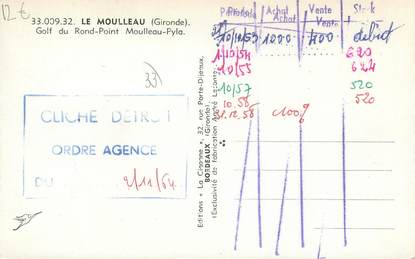 12€
33.009.32. LE MOULLEAU (Gironde).
Golf du Rond-Point Moulleau-Pyla.
33
CLICHÉ DÉTRUIT
ORDRE AGENCE
DU 9/11/64
Editions « La Cigogne », 32, rue Porte-Dijeaux,
BORDEAUX (Gironde)
(Exclusivité de fabrication André Leconte)
Achat Vente Stock
Achat Vente
10/12/53 1000 400 début
1/10/54 620
10/55 624
10/57 520
10.58 520
31.12.58 100g